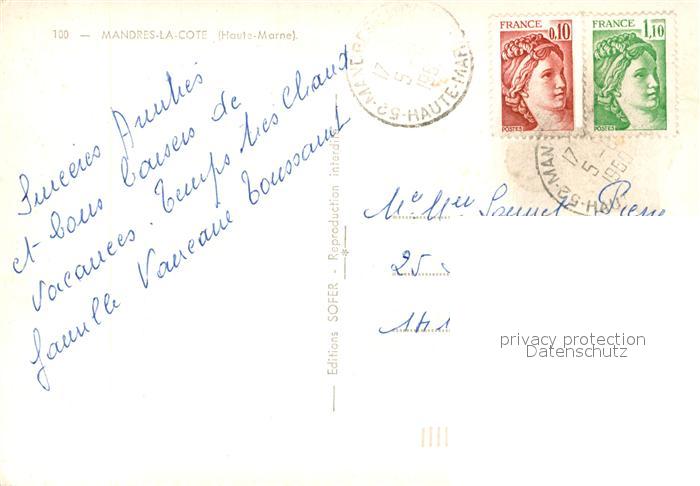 100 — MANDRES-LA-COTE (Haute-Marne).
Sincères Amitiés
et bons baisers de
vacances. Temps très chaud
famille Toussaint
Editions SOFER - Reproduction interdite
FRANCE
0,10
POSTES
FRANCE
1,10
POSTES
52-HAUTE-MAR
17
5
52-MAN
17
5
HAU
Pierre
25
privacy protection
Datenschutz